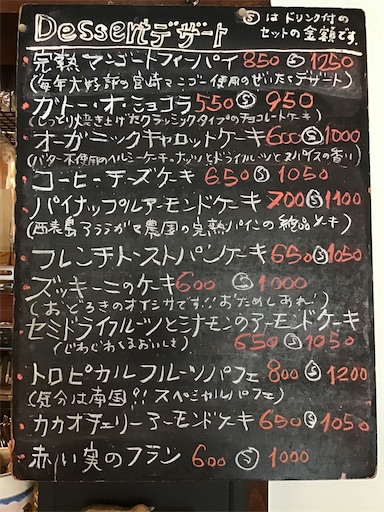 Dessert デザート ⓢは ドリンク付の
セットの金額です。
完熟マンゴートフィーパイ 850 ⓢ 1250
(毎年大好評の宮崎マンゴー使用のぜいたくデザート)
ガトー・オ・ショコラ 550 ⓢ 950
(しっとり焼き上げたクラッシックタイプのチョコレートケーキ)
オーガニックキャロットケーキ 600 ⓢ 1000
(バター不使用のヘルシーケーキ・ナッツとドライフルーツとスパイスの香り)
コーヒーチーズケーキ 650 ⓢ 1050
パイナップルアーモンドケーキ 700 ⓢ 1100
(西表島アララガマ農園の完熟パインの絶品ケーキ)
フレンチトーストパンケーキ 650 ⓢ 1050
ズッキーニのケーキ 600 ⓢ 1000
(おどろきのオイシサです!!おためしあれ!)
セミドライフルーツとシナモンのアーモンドケーキ
(じわじわくるおいしさ) 650 ⓢ 1050
トロピカルフルーツパフェ 800 ⓢ 1200
(気分は南国!! スペシャルパフェ)
カカオチェリーアーモンドケーキ 650 ⓢ 1050
赤い実のフラン 600 ⓢ 1000